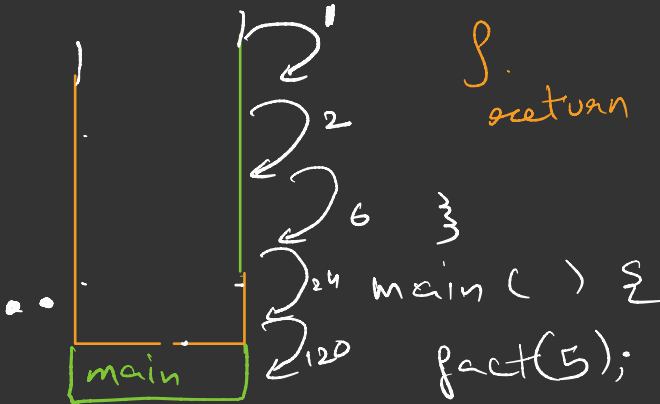 1
2
6
24
120
main
return
}
main ( ) {
fact(5);